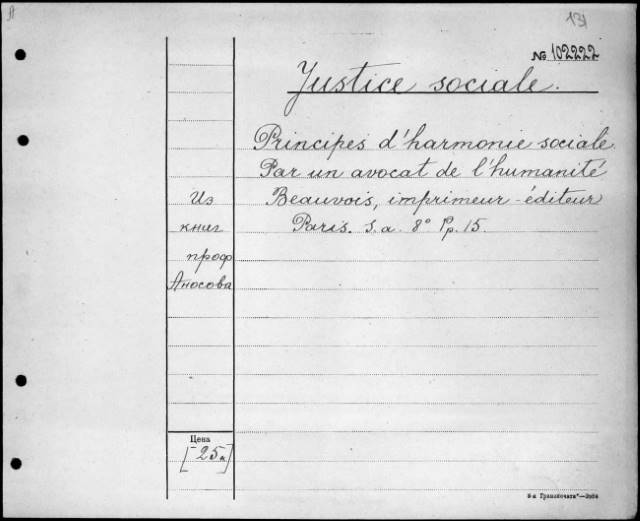 A
131
№ 102222
Justice sociale.
Principes d'harmonie sociale.
Par un avocat de l'humanité
Beauvois, imprimeur-éditeur
Paris. s.a. 8° Pp. 15.
Из
книг
проф
Аносова
Цена
[25к]